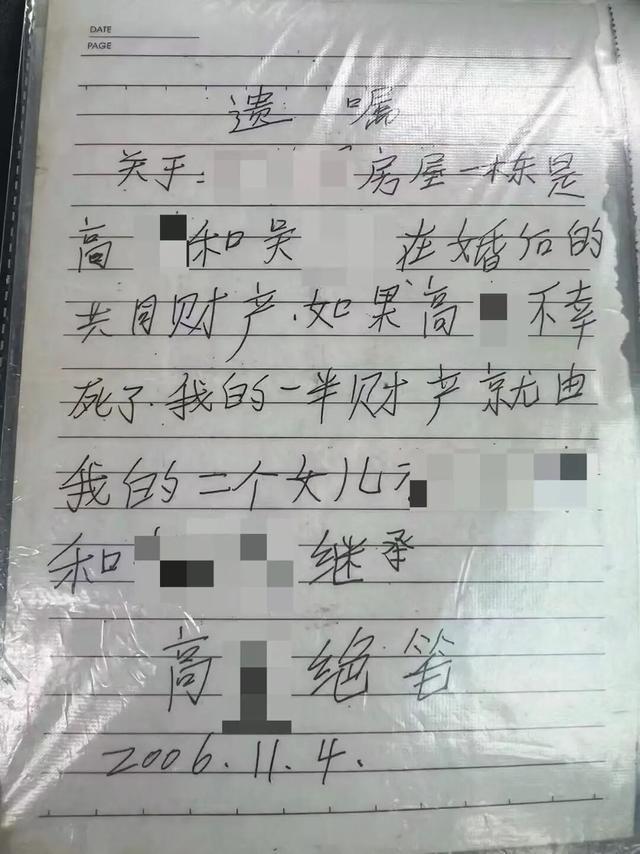 DATE
PAGE
遗嘱
关于: 房屋一栋是
高 和吴 在婚后的
共同财产.如果高 不幸
死了.我的一半财产就由
我的二个女儿
和 继承
高 绝笔
2006.11.4.